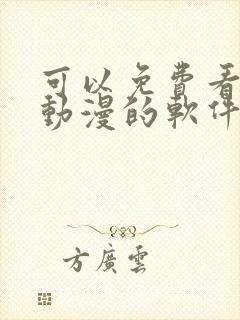 可以免費看
動漫的軟件
方廣雲